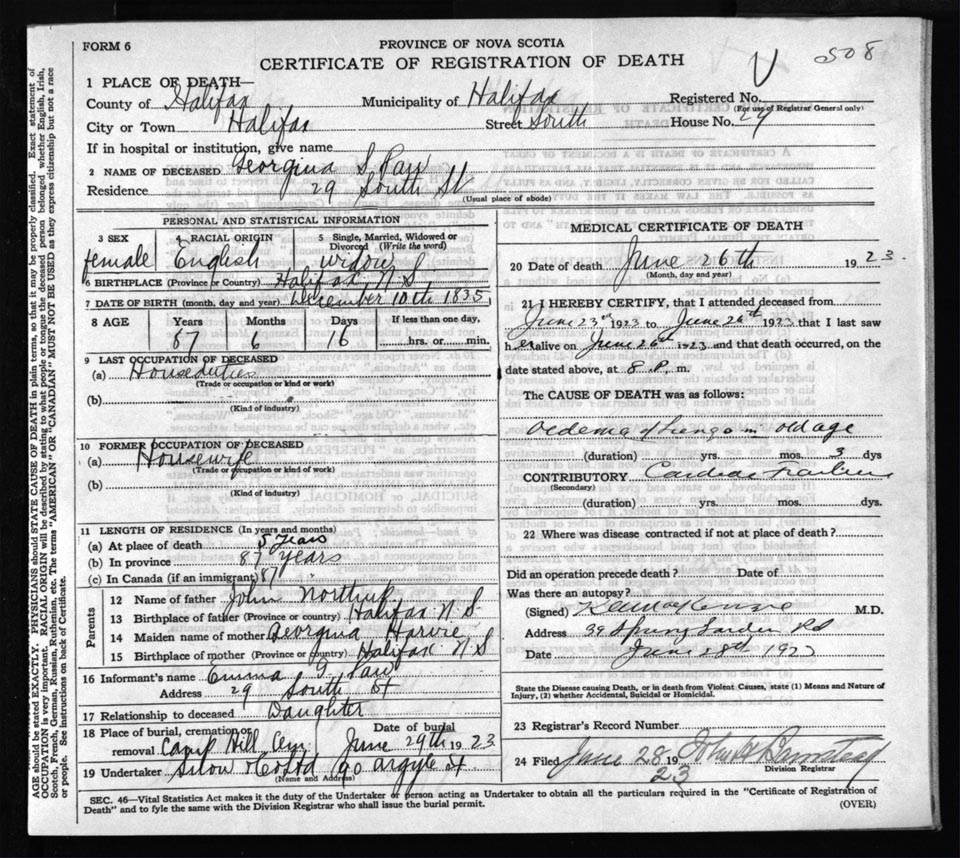 FORM 6
PROVINCE OF NOVA SCOTIA
CERTIFICATE OF REGISTRATION OF DEATH
508
1 PLACE OF DEATH—
County of Halifax Municipality of Halifax Registered No.
(For use of Registrar General only)
City or Town Halifax Street South House No. 29
If in hospital or institution, give name
2 NAME OF DECEASED Georgina S. Paw
Residence 29 South St
(Usual place of abode)
PERSONAL AND STATISTICAL INFORMATION
3 SEX 4 RACIAL ORIGIN 5 Single, Married, Widowed or Divorced (Write the word)
female English widow
6 BIRTHPLACE (Province or Country) Halifax N.S
7 DATE OF BIRTH (month, day and year) December 10th 1835
8 AGE Years Months Days If less than one day,
87 6 16 hrs. or min.
9 LAST OCCUPATION OF DECEASED
(a) Houseduties
(Trade or occupation or kind of work)
(b)
(Kind of industry)
10 FORMER OCCUPATION OF DECEASED
(a) Housewife
(Trade or occupation or kind of work)
(b)
(Kind of industry)
11 LENGTH OF RESIDENCE (In years and months)
(a) At place of death 5 years
(b) In province 87 years
(c) In Canada (if an immigrant) 87
Parents
12 Name of father John Northup
13 Birthplace of father (Province or country) Halifax N S
14 Maiden name of mother Georgina Harvie
15 Birthplace of mother (Province or country) Halifax N S
16 Informant's name Emma G Paw
Address 29 South St
17 Relationship to deceased Daughter
18 Place of burial, cremation or removal Camp Hill Date of burial June 29th 1923
19 Undertaker Snow & Co Ltd 90 Argyle St
(Name and Address)
MEDICAL CERTIFICATE OF DEATH
20 Date of death June 26th 1923
(Month, day and year)
21 I HEREBY CERTIFY, that I attended deceased from
June 23rd 1923 to June 26th 1923 that I last saw
her alive on June 26th 1923 and that death occurred, on the
date stated above, at 8 P. m.
The CAUSE OF DEATH was as follows:
Oedema of Lungs in old age
(duration) yrs. mos. 3 dys
CONTRIBUTORY Cardiac Failure
(Secondary)
(duration) yrs. mos. dys.
22 Where was disease contracted if not at place of death?
Did an operation precede death? Date of
Was there an autopsy?
(Signed) M.D.
Address 39 Spring Garden Rd
Date June 28th 1923
State the Disease causing Death, or in death from Violent Causes, state (1) Means and Nature of
Injury, (2) whether Accidental, Suicidal or Homicidal.
23 Registrar's Record Number
24 Filed June 28 1923 John
Division Registrar
SEC. 46—Vital Statistics Act makes it the duty of the Undertaker or person acting as Undertaker to obtain all the particulars required in the "Certificate of Registration of
Death" and to fyle the same with the Division Registrar who shall issue the burial permit.
(OVER)
AGE should be stated EXACTLY. PHYSICIANS should STATE CAUSE OF DEATH in plain terms, so that it may be properly classified. Exact statement of
OCCUPATION is very important. RACIAL ORIGIN will be described by stating to what people or tongue the deceased person belonged whether English, Irish,
Scotch, French, German, Russian, Ruthenian, etc. The terms "AMERICAN" OR "CANADIAN" MUST NOT BE USED as they express citizenship but not a race
or people. See instructions on back of Certificate.